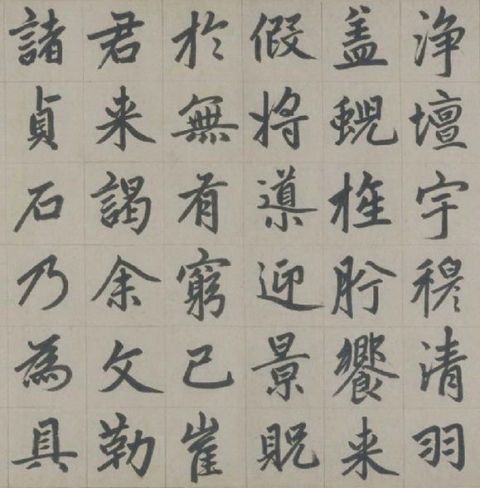 浄壇宇穆清羽
盖蜺旌肸饗来
假将導迎景貺
於無有窮已崔
君来謁余文勒
諸貞石乃為具